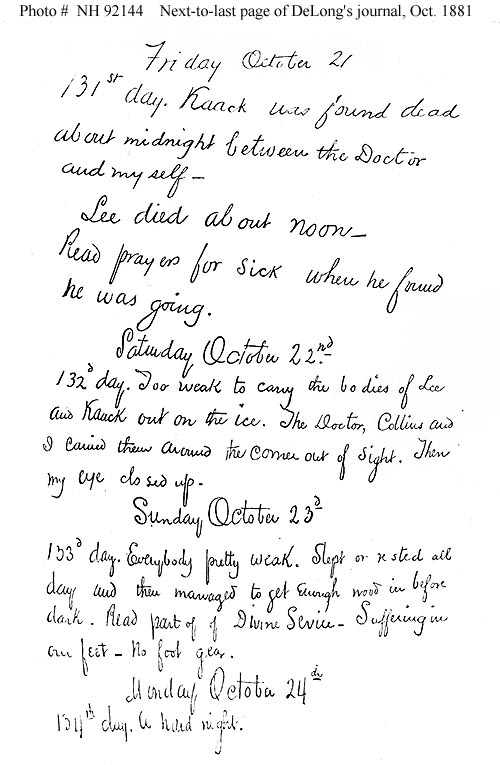 Photo # NH 92144 Next-to-last page of DeLong's journal, Oct. 1881
Friday October 21
131st day. Kaack was found dead
about midnight between the Doctor
and myself—
Lee died about noon—
Read prayers for sick when he found
he was going.
Saturday October 22nd.
132d day. Too weak to carry the bodies of Lee
and Kaack out on the ice. The Doctor, Collins and
I carried them around the corner out of sight. Then
my eye closed up.
Sunday October 23d
133d day. Everybody pretty weak. Slept or rested all
day and then managed to get enough wood in before
dark. Read part of Divine Service— Suffering in
our feet— No foot gear.
Monday October 24th
134th day. A hard night.